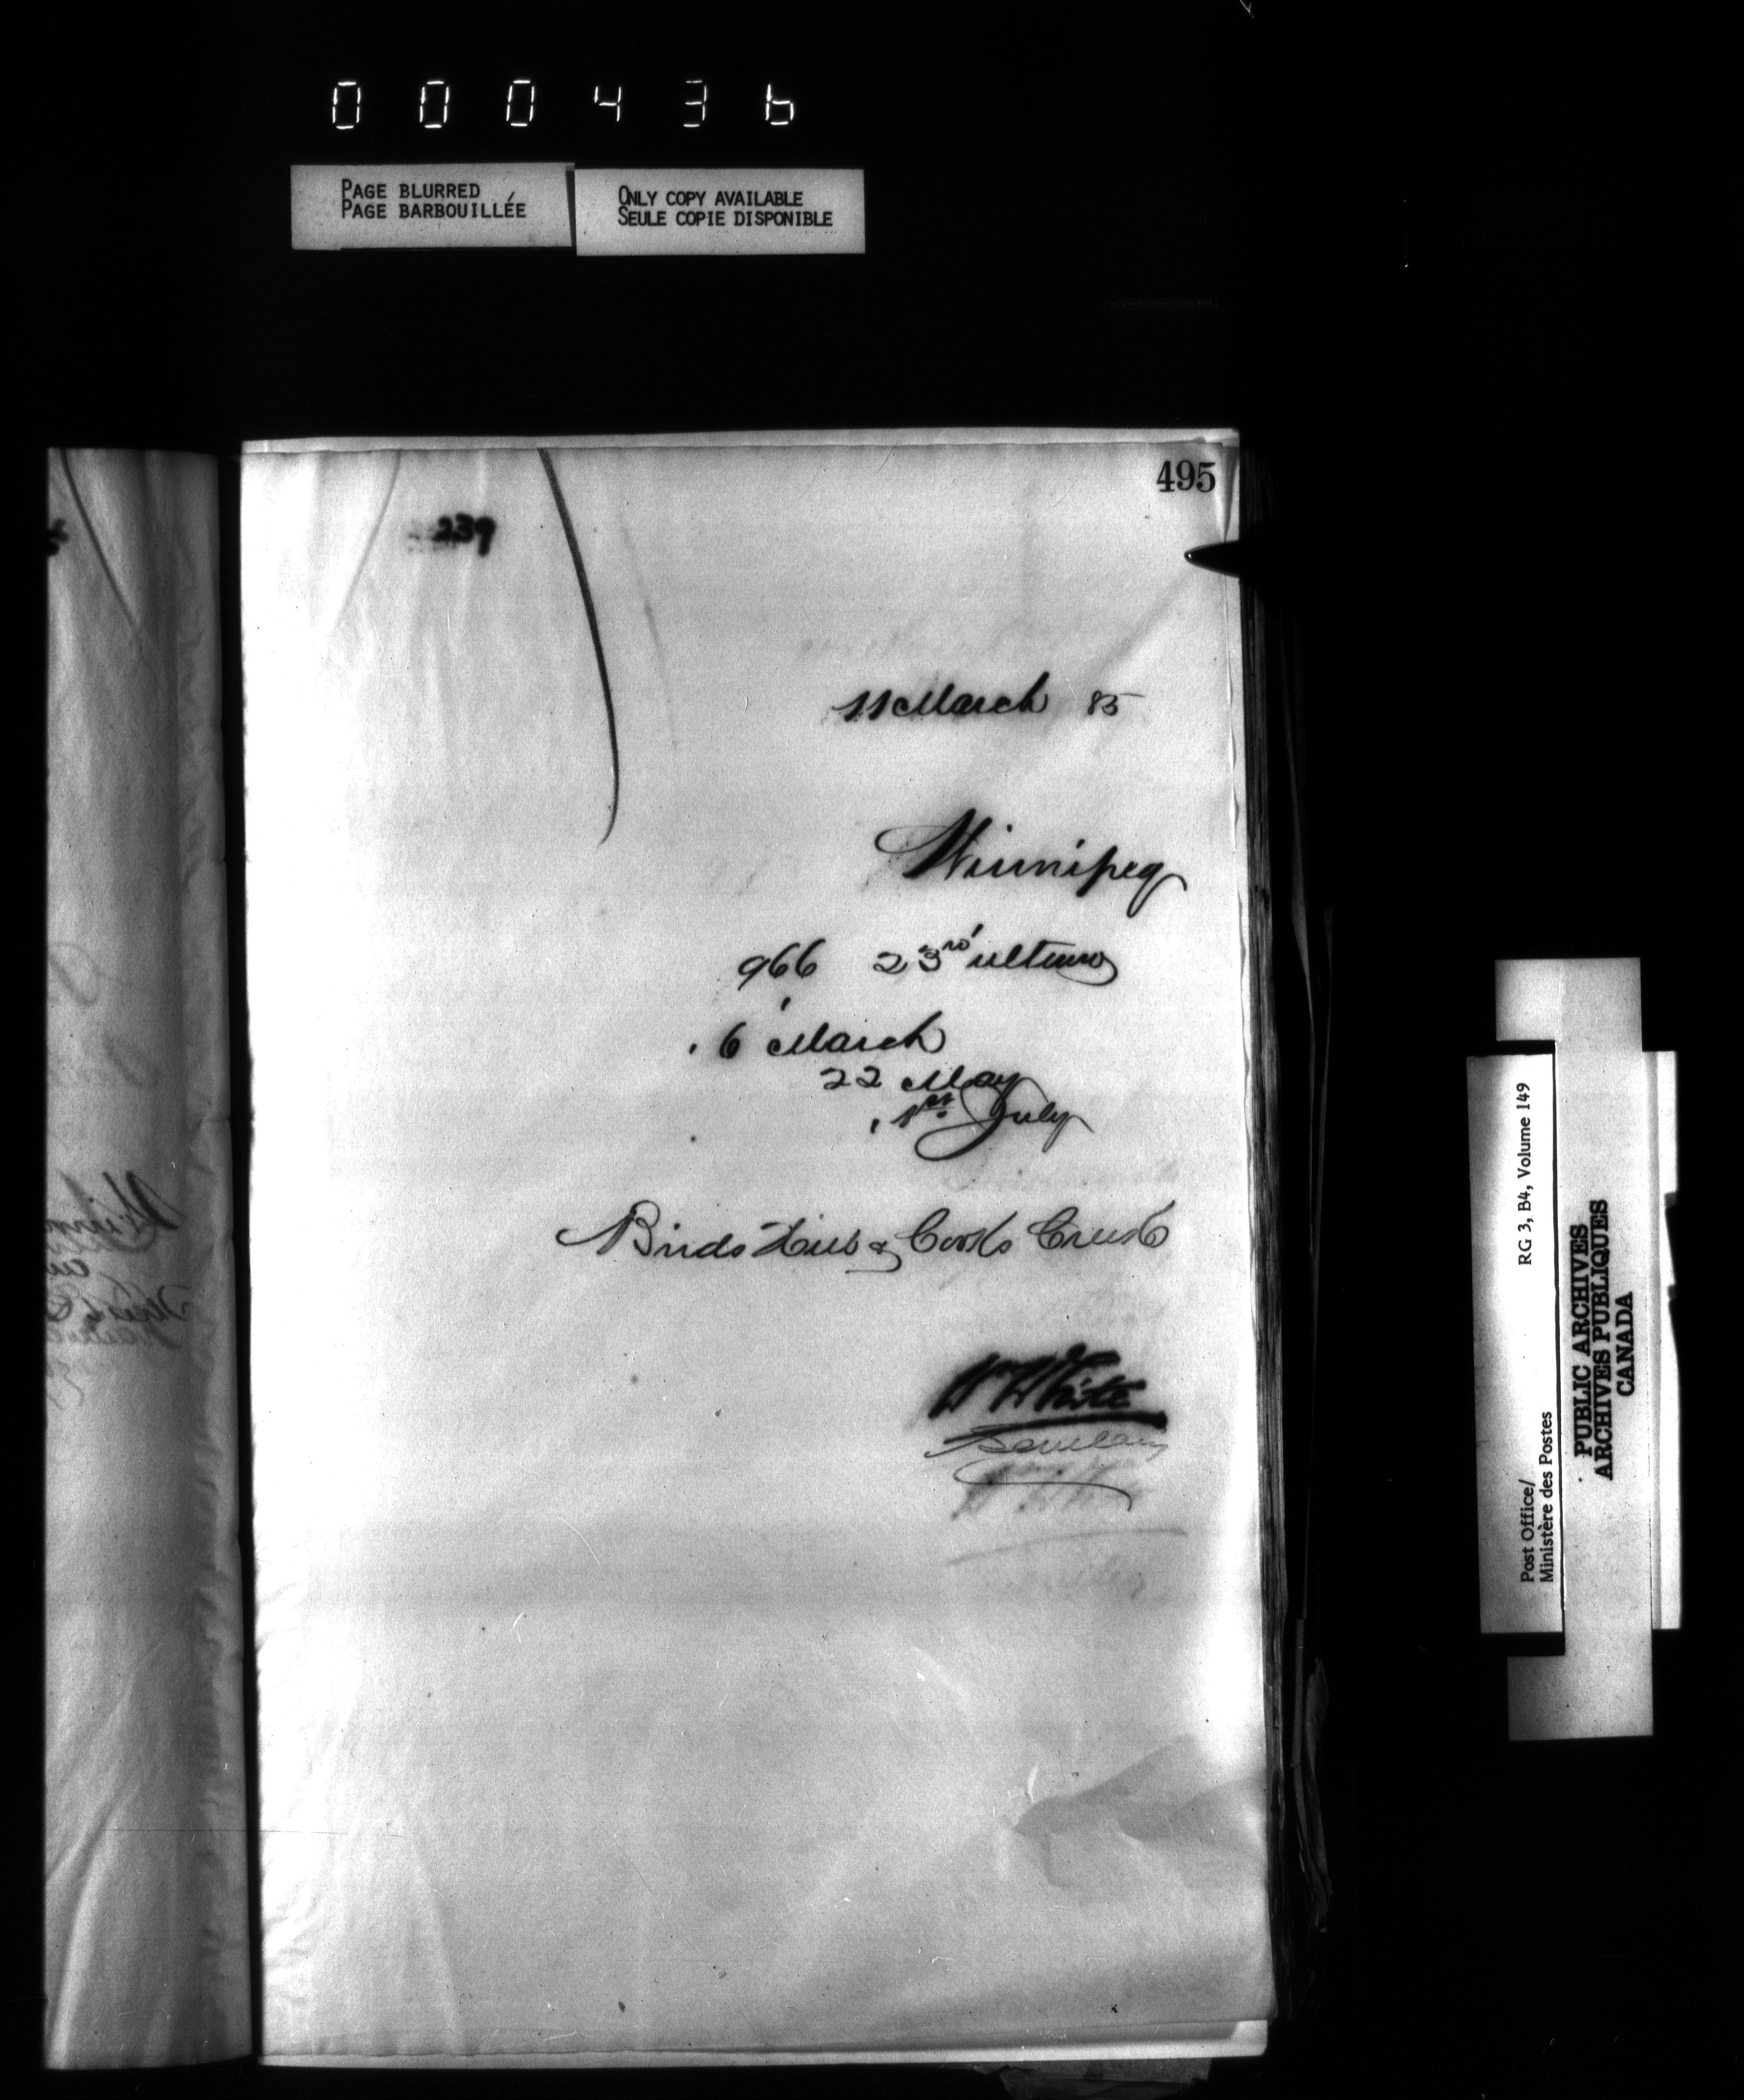 000436
PAGE BLURRED
PAGE BARBOUILLÉE
ONLY COPY AVAILABLE
SEULE COPIE DISPONIBLE
495
239
11 March 85
Winnipeg
966 23rd ultimo
6 March
22 May
1st July
Birds Hill & Cooks Creek
W White
Secretary
RG 3, B4, Volume 149
Post Office/
Ministère des Postes
PUBLIC ARCHIVES
ARCHIVES PUBLIQUES
CANADA